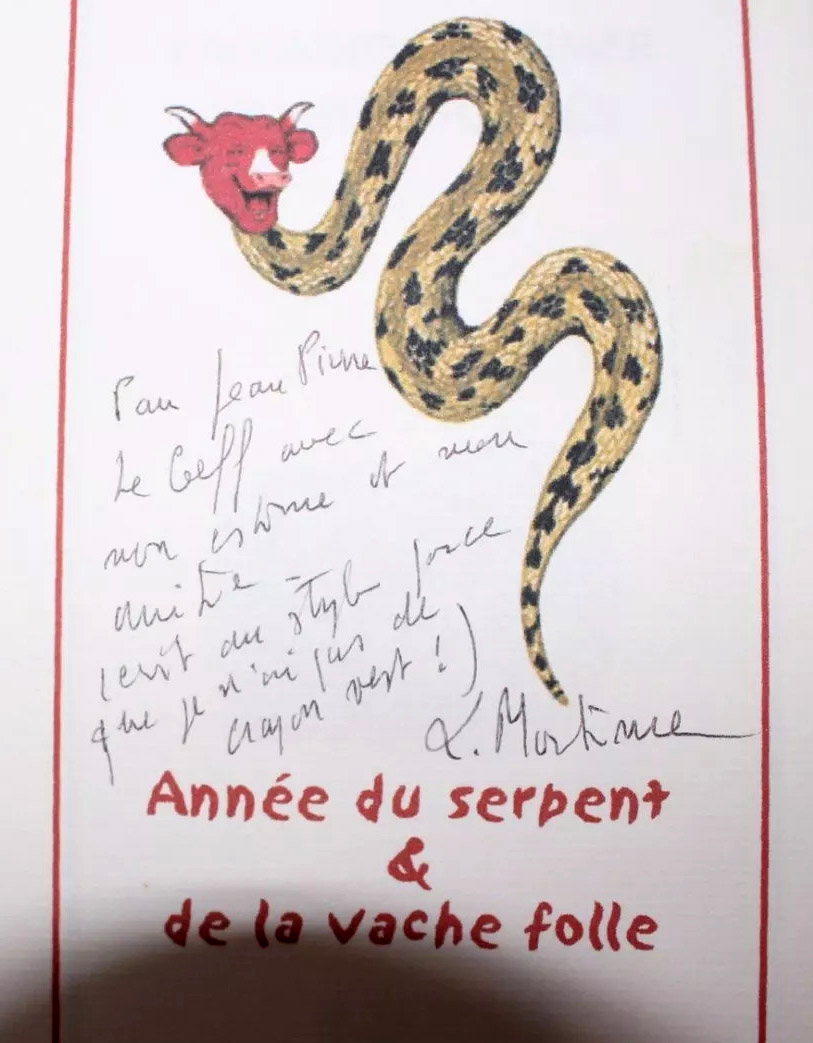 Pour Jean Pierre
Le Goff avec
mon estime et mon
amitié
(écrit au stylo parce
que je n'ai pas de
crayon vert !)
L. Mortimer
Année du serpent
&
de la vache folle